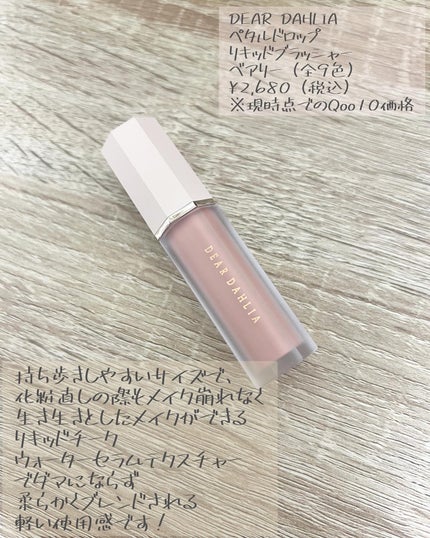 DEAR DAHLIA
ペタルドロップ
リキッドブラッシャー
ベアリー (全9色)
¥2,680 (税込)
※現時点でのQoo10価格
DEAR DAHLIA
持ち歩きしやすいサイズで、
化粧直しの際もメイク崩れなく
生き生きとしたメイクができる
リキッドチーク
ウォーターセラムテクスチャー
でダマにならず
柔らかくブレンドされる
軽い使用感です！